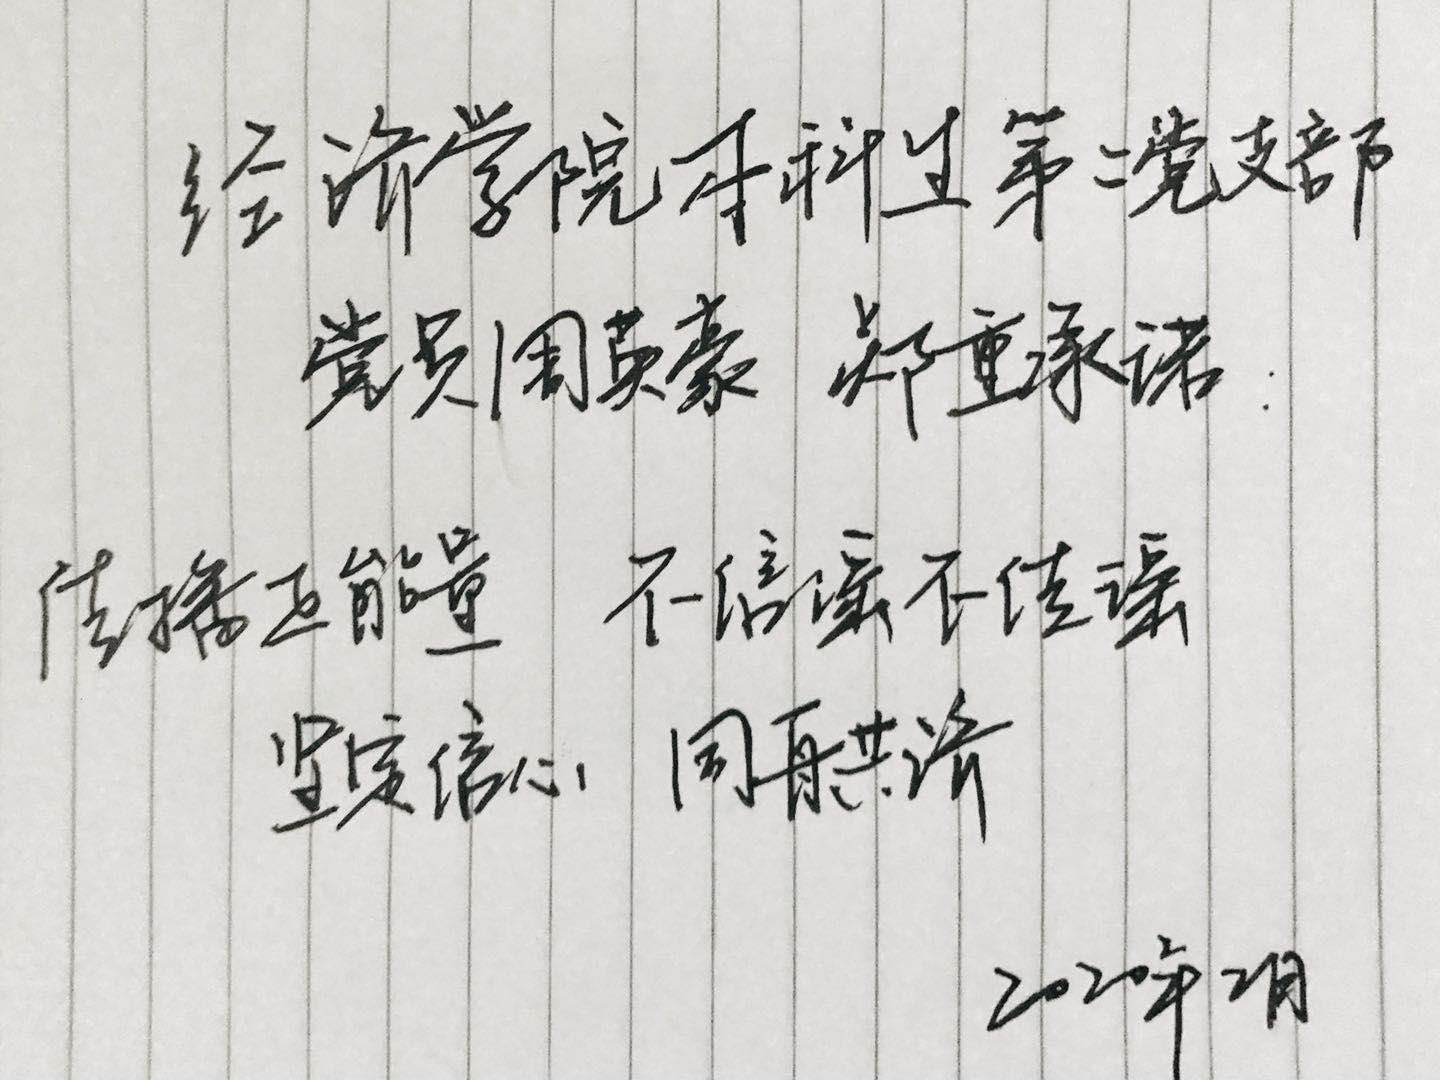 经济学院本科生第二党支部
党员周英豪 郑重承诺:
传播正能量 不信谣不传谣
坚定信心 同舟共济
2020年2月